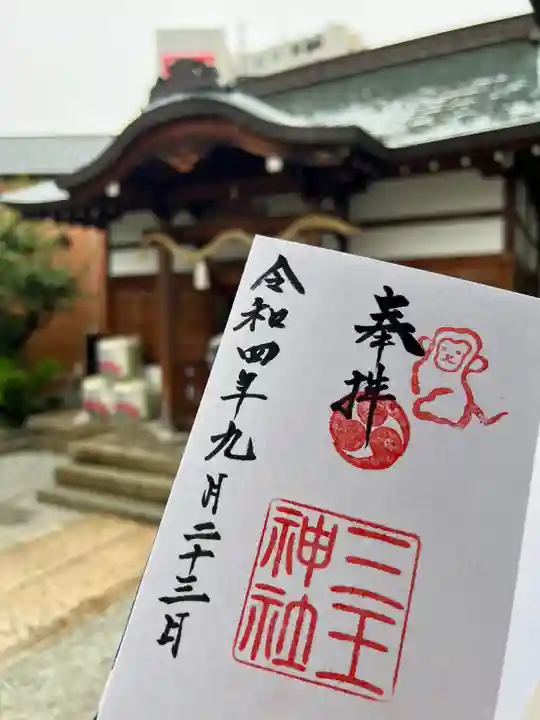 奉拝
三王
神社
令和四年九月二十三日